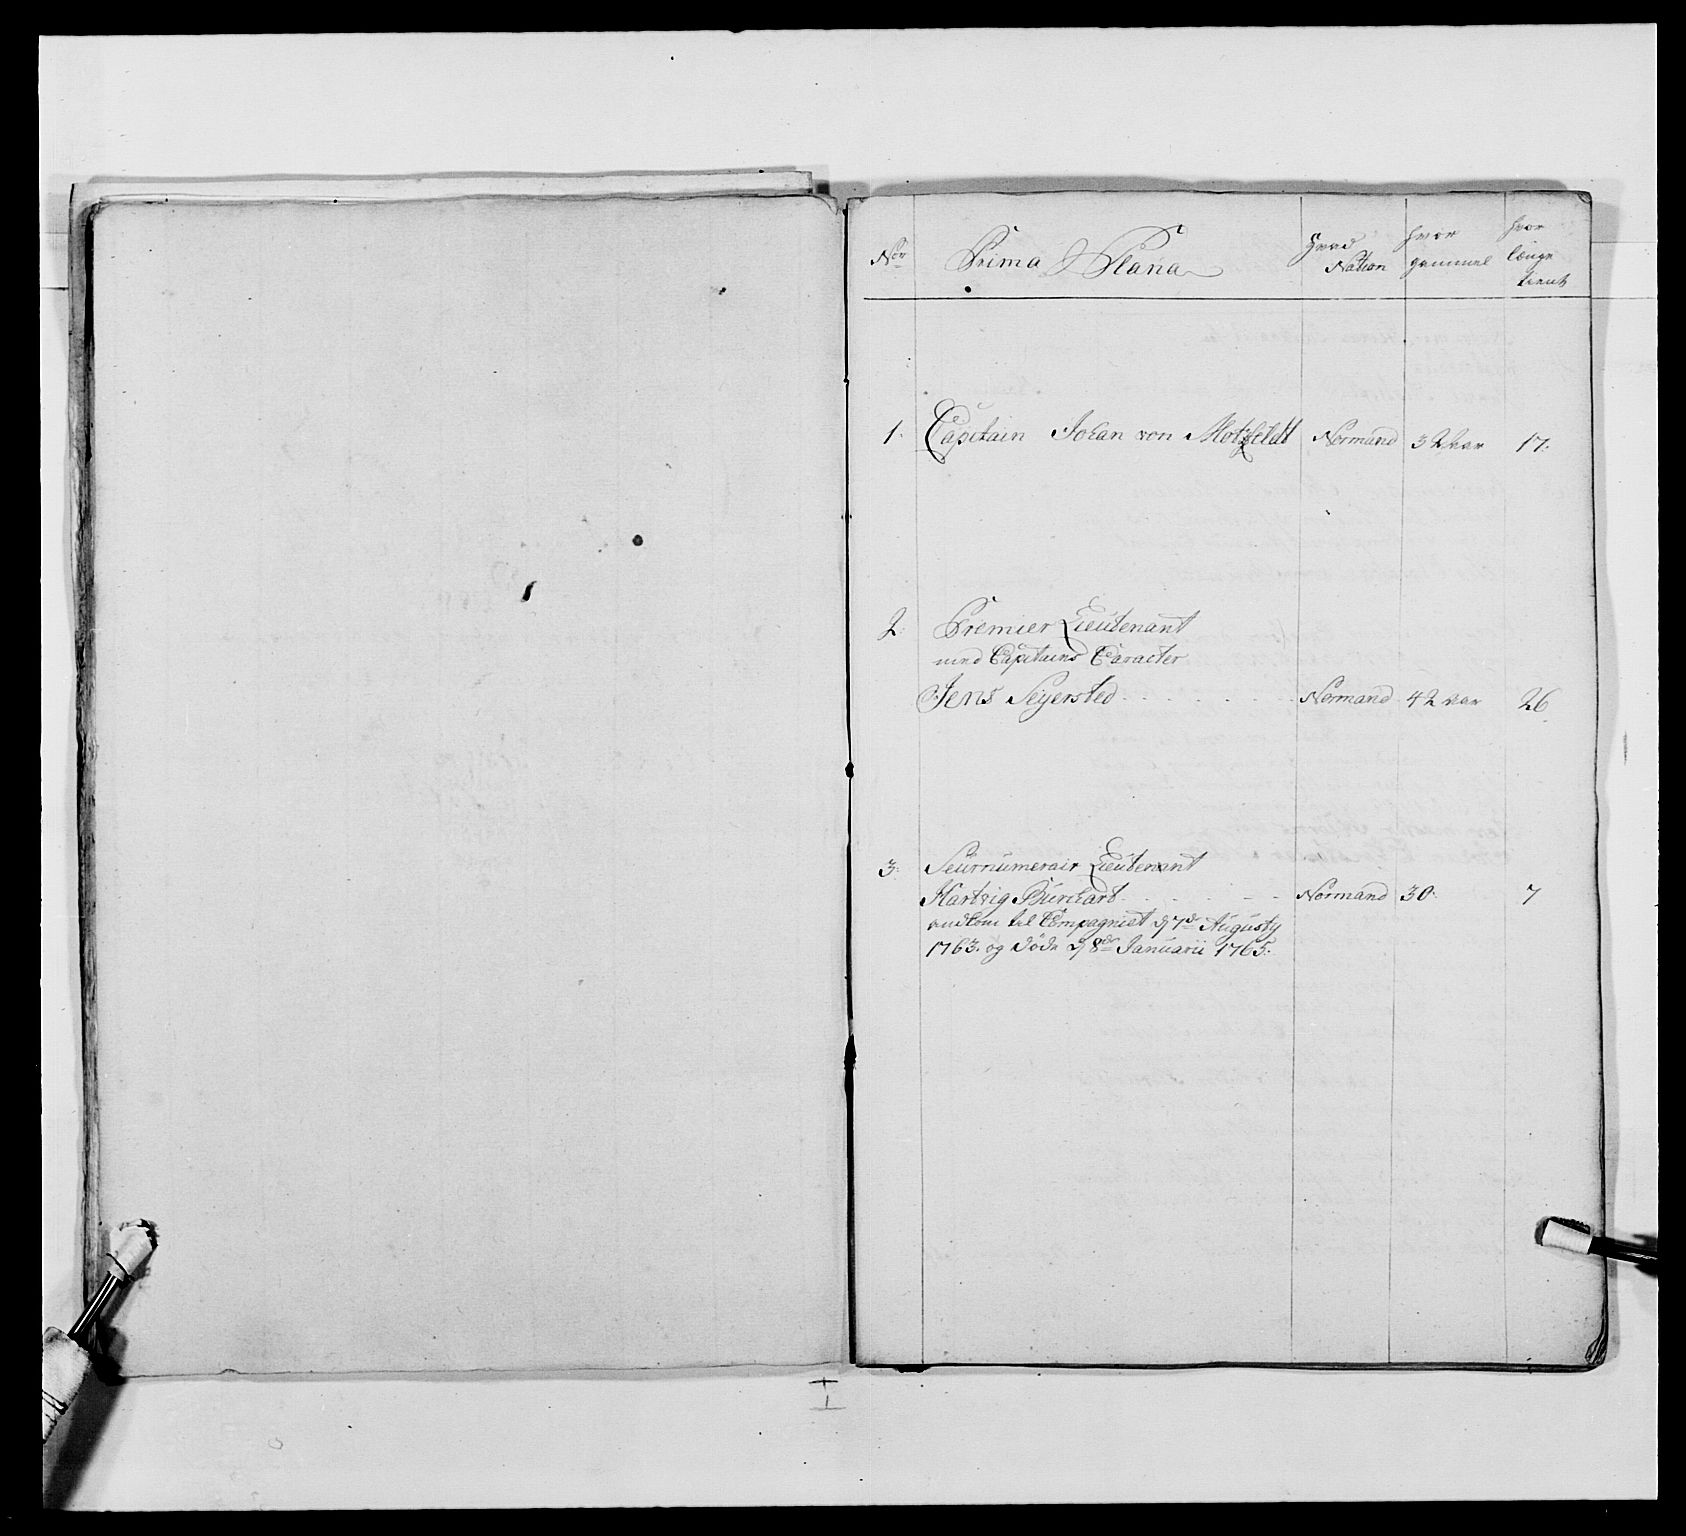 No: Prima Plana Hvad Nation hvor gammel hvor længe tient
1. Capitain Johan von Motzfeldt Normand 32 aar 17.
2. Premier Lieutenant
med Capitains Caracter
Jens Seyersted Normand 42 aar 26.
3. Seurnumerair Lieutenant
Hartvig Burchart Normand 30. 7
ankom til Compagniet d 7de Augusty
1763. og døde d 8de Januarii 1765.